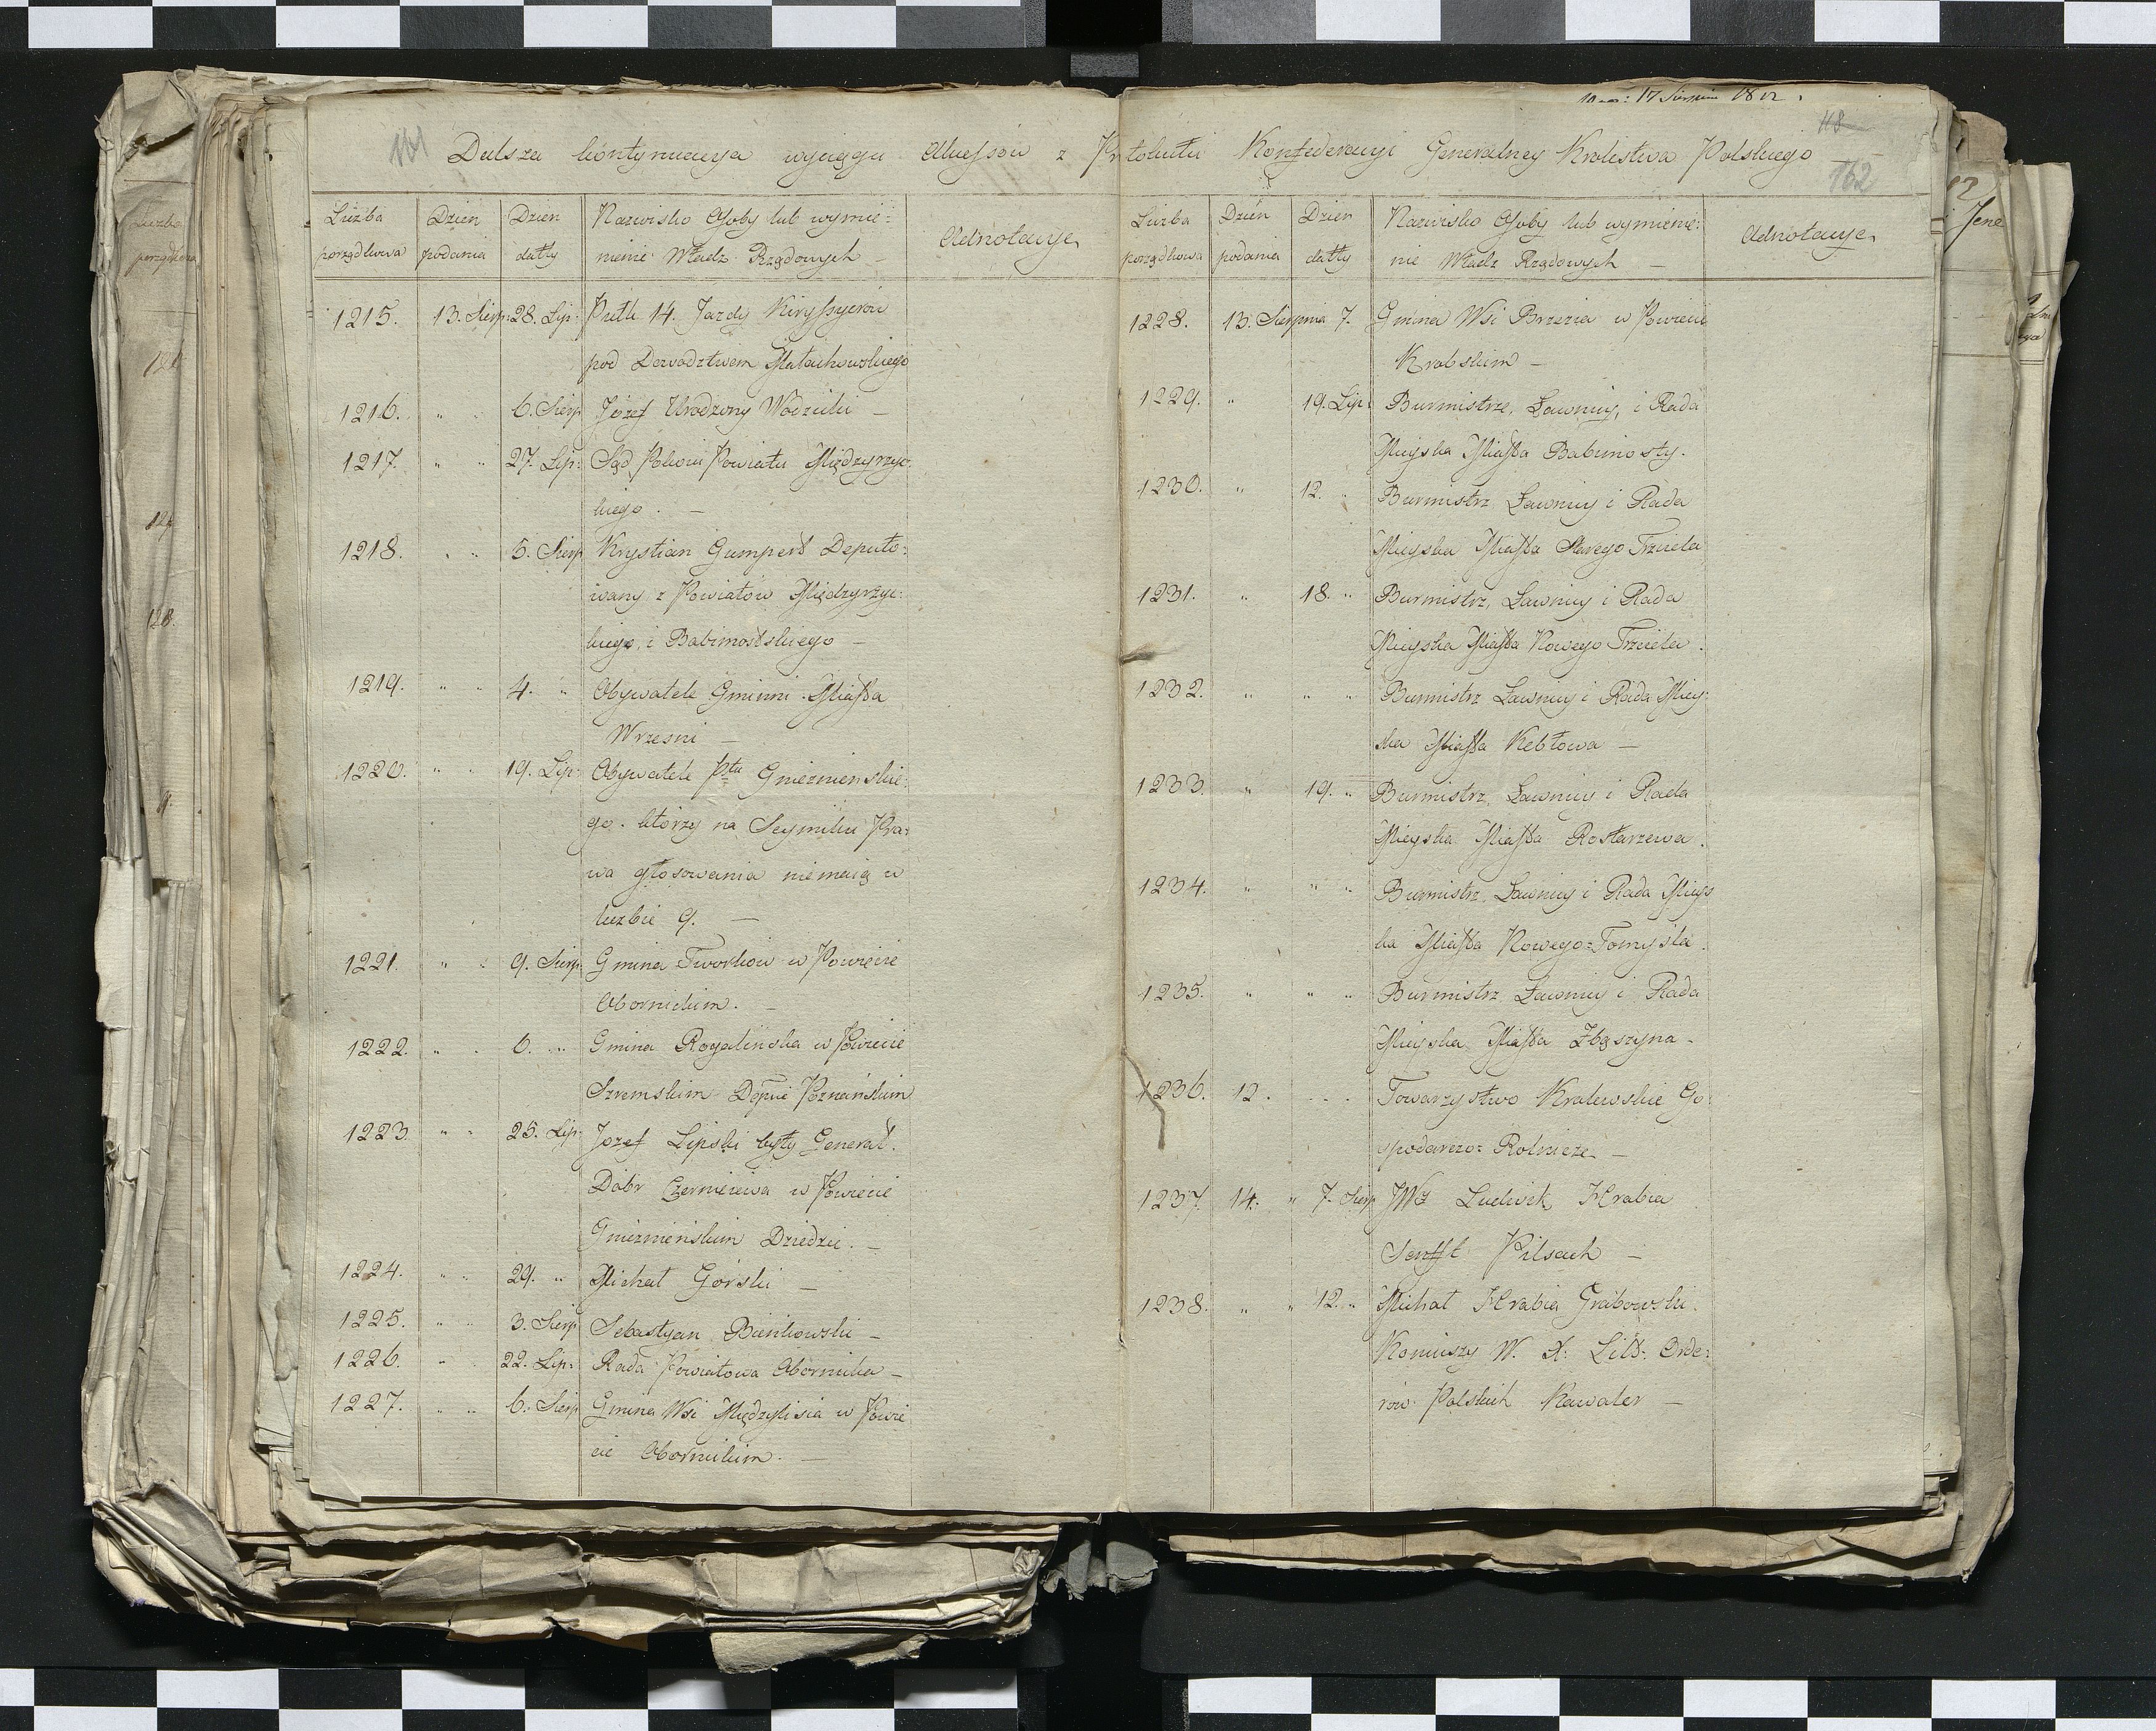 10 aū: 17 Sierpnia 1812.
161
118
162
Dalsza kontynuacya wyciągu Akcessów z Protokułu Konfederacyi Generalney Krolestwa Polskiego
Liczba porządkowa
Dzień podania
Dzień datty
Nazwisko Osoby lub wymie:
nienie Władz Rządowych —
Adnotacye
1215. 13. Sierp: 28. Lip: Pułk 14. Jazdy Kiryssyerów
pod Dowodztwem Małachowskiego
1216. " " 6. Sierp Józef Urodzony Wodzicki —
1217. " " 27. Lip: Sąd Pokoiu Powiatu Międzyrzyc
kiego. —
1218. " " 5. Sierp Krystian Gumpert Deputo:
wany z Powiatów Międzyrzyc:
kiego, i Babimostskiego —
1219. " " 4. " Obywatele Gminni Miasta
Wrzesni —
1220. " " 19. Lip: Obywatele Pttu Gnieznienskie:
go. którzy na Seymiku Pra:
wa głosowania niemaią w
liczbie 9. —
1221. " " 9. Sierp: Gmina Tworkow w Powiecie
Obornickim. —
1222. " " 6. " Gmina Rogalinska w Powiecie
Szremskim Depcie Poznańskim
1223. " " 25. Lip: Jozef Lipski były Generał.
Dobr Czerniejewa w Powiecie
Gnieznieńskim Dziedzic. —
1224. " " 29. " Michał Górski —
1225. " " 3. Sierp Sebastyan Bieńkowski —
1226. " " 22. Lip: Rada Powiatowa Obornicka —
1227. " " 6. Sierp Gmina Wsi Międzylisia w Powie
cie Obornickim. —
Liczba porządkowa
Dzień podania
Dzień datty
Nazwisko Osoby lub wymienie:
nie Władz Rządowych —
Adnotacye
1228. 13. Sierpnia 7. Gmina Wsi Brzezia w Powiecie
Krobskim —
1229. " 19. Lip: Burmistrz, Ławnicy, i Rada
Mieyska Miasta Babimosty.
1230. " 12. " Burmistrz Ławnicy i Rada
Mieyska Miasta Starego Trzciela
1231. " 18. " Burmistrz, Ławnicy i Rada
Mieyska Miasta Nowego Trzciela.
1232. " " " Burmistrz Ławnicy i Rada Miey:
ska Miasta Kebłowa —
1233. " 19. " Burmistrz, Ławnicy i Rada
Mieyska Miasta Rostarzewa.
1234. " " " Burmistrz, Ławnicy i Rada Mieys
ka Miasta Nowego=Tomyśla.
1235. " " " Burmistrz Ławnicy i Rada
Mieyska Miasta Zbąszyna -
1236. 12. " " Towarzystwo Krolewskie Go:
spodarczo=Rolnicze —
1237. 14. " 7. Sierp JWż Ludwik Hrabia
Senfft Pilsach —
1238. " " 12. " Michał Hrabia Grabowski.
Koniuszy W. X: Litt: Orde:
row Polskich Kawaler —